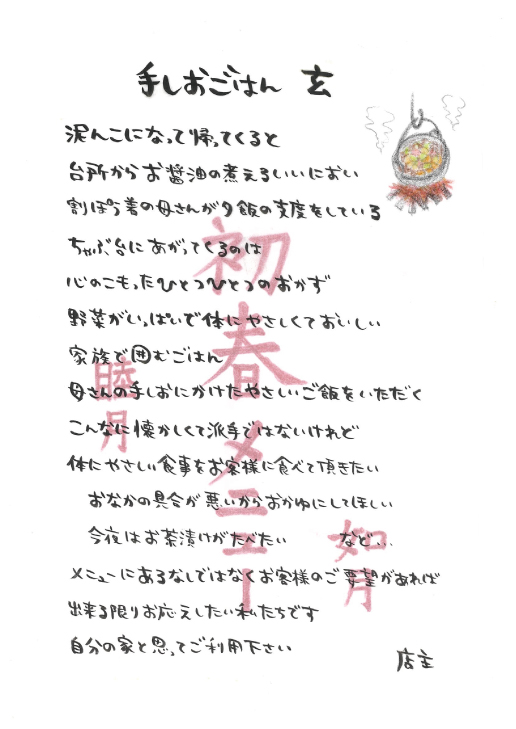 手しおごはん 玄
泥んこになって帰ってくると
台所からお醤油の煮えるいいにおい
割ぽう着の母さんが夕飯の支度をしている
ちゃぶ台にあがってくるのは
心のこもったひとつひとつのおかず
野菜がいっぱいで体にやさしくておいしい
家族で囲むごはん
母さんの手しおにかけたやさしいご飯をいただく
こんなに懐かしくて派手ではないけれど
体にやさしい食事をお客様に食べて頂きたい
おなかの具合が悪いからおかゆにしてほしい
今夜はお茶漬けがたべたい など...
メニューにあるなしではなくお客様のご要望があれば
出来る限りお応えしたい私たちです
自分の家と思ってご利用下さい
店主
初春メニュー
睦月
如月